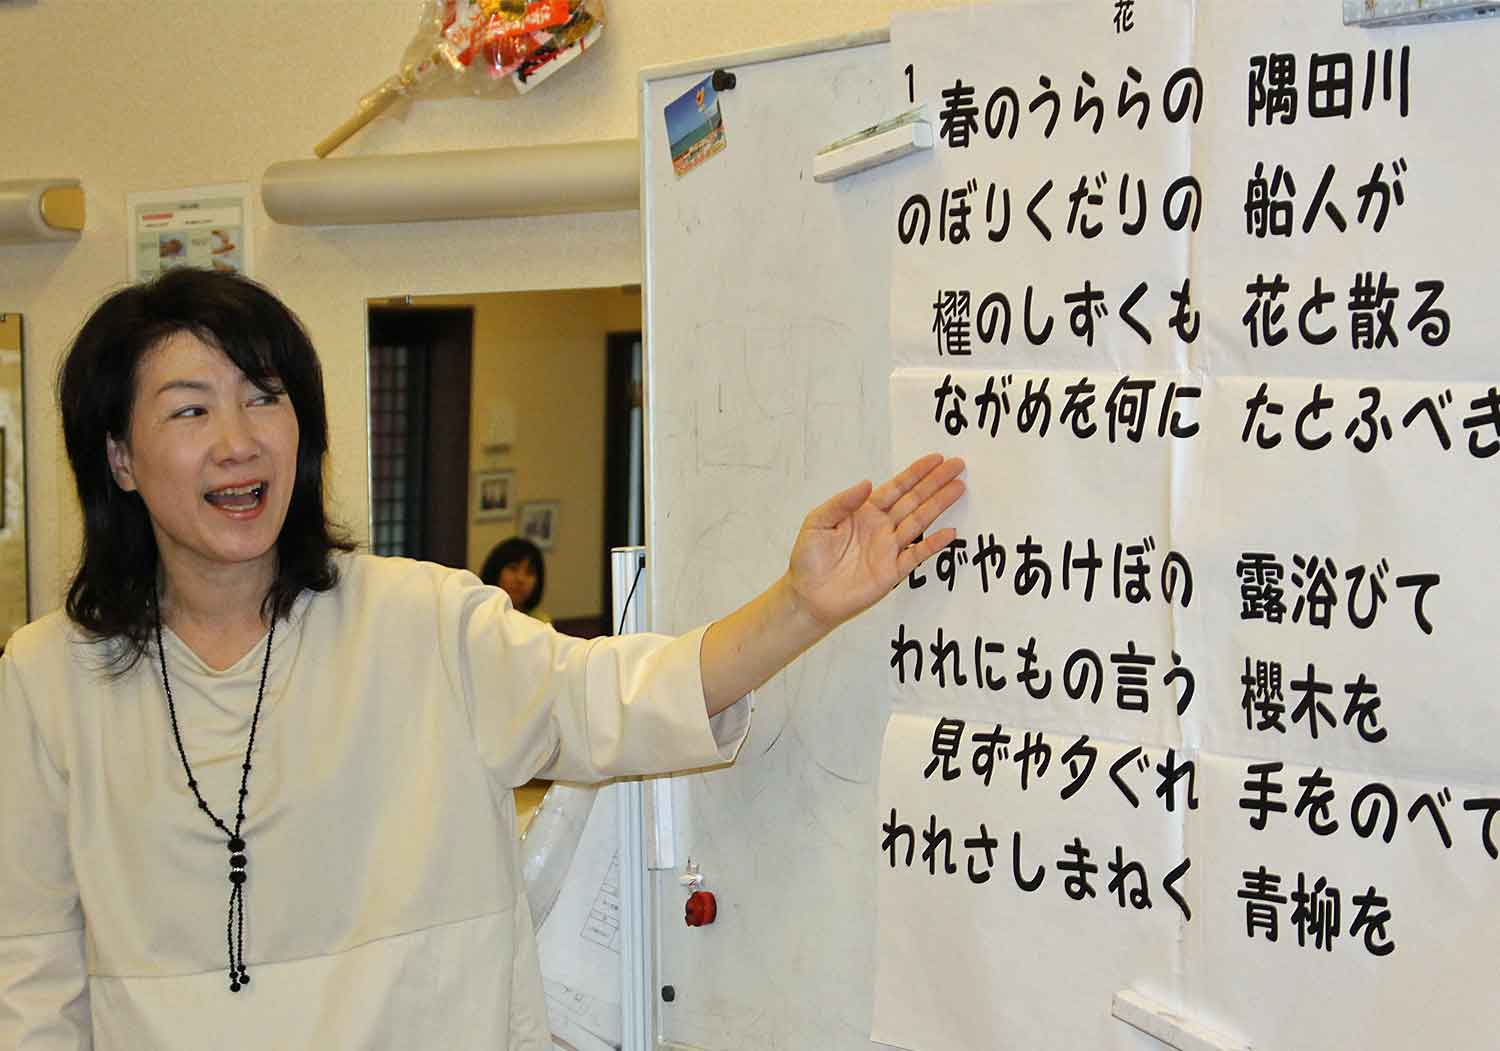 花
1
春のうららの 隅田川
のぼりくだりの 船人が
櫂のしずくも 花と散る
ながめを何に たとふべき
見ずやあけぼの 露浴びて
われにもの言う 櫻木を
見ずや夕ぐれ 手をのべて
われさしまねく 青柳を